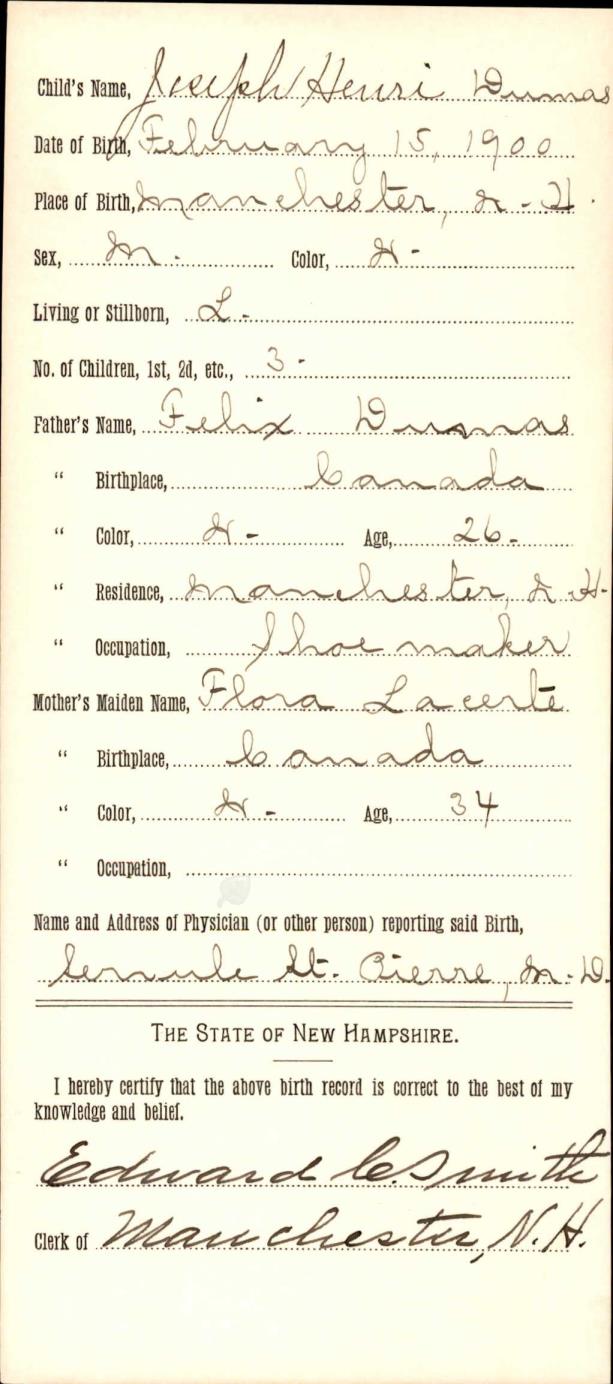 Child's Name, Joseph Henri Dumas
Date of Birth, February 15, 1900
Place of Birth, Manchester, N-H.
Sex, M. Color, W-
Living or Stillborn, L-
No. of Children, 1st, 2d, etc., 3-
Father's Name, Felix Dumas
" Birthplace, Canada
" Color, W- Age, 26-
" Residence, Manchester, N H-
" Occupation, Shoe maker
Mother's Maiden Name, Flora Lacerte
" Birthplace, Canada
" Color, W- Age, 34
" Occupation,
Name and Address of Physician (or other person) reporting said Birth,
St. Pierre, M-D.
THE STATE OF NEW HAMPSHIRE.
I hereby certify that the above birth record is correct to the best of my
knowledge and belief.
Edward C. Smith
Clerk of Manchester, N.H.